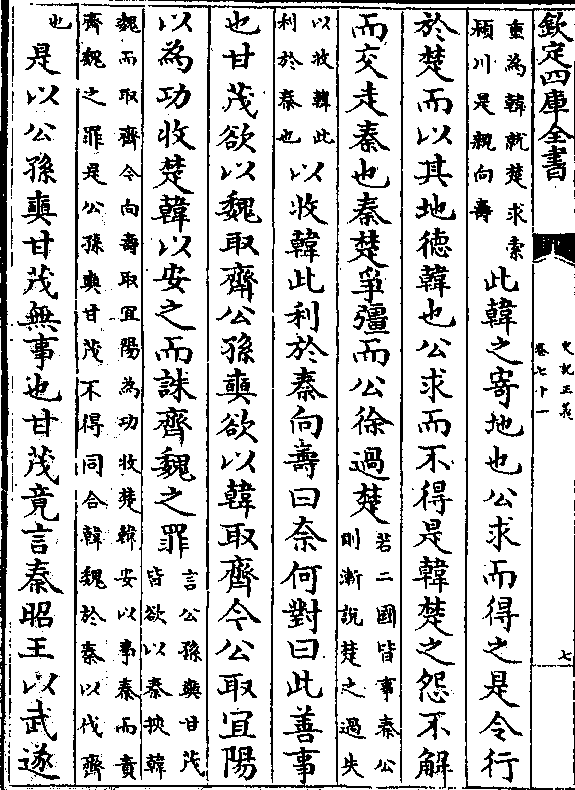 欽定四庫全書
史記正義
卷七十一
七
重為韓就楚求索
潁川是親向壽
此韓之寄地也公求而得之是令行
於楚而以其地德韓也公求而不得是韓楚之怨不解
而交走秦也秦楚爭彊而公徐過楚
若二國皆事秦公
則漸說楚之過失
以收韓此
利於秦也
以收韓此利於秦向壽曰奈何對曰此善事
也甘茂欲以魏取齊公孫奭欲以韓取齊今公取宜陽
以為功收楚韓以安之而誅齊魏之罪
言公孫奭甘茂
皆欲以秦挾韓
魏而取齊今向壽取宜陽為功收楚韓安以事秦而責
齊魏之罪是公孫奭甘茂不得同合韓魏於秦以伐齊
也
是以公孫奭甘茂無事也甘茂竟言秦昭王以武遂